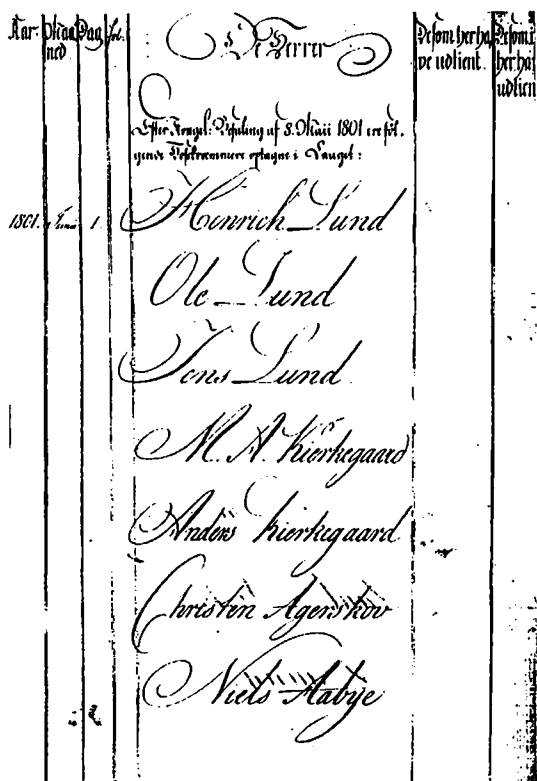 Aar: Maaned Dag fol. De Herrer De som her have udtient. De som i her har udtien
Efter Kongel: Befaling af 8. Maii 1801 ere føl.
gende optagne i Lauget:
1801. Junii 1. Hinrich Lund
Ole Lund
Jens Lund
M. A. Kierkegaard
Anders Kierkegaard
Christen Agerskov
Niels Aabye